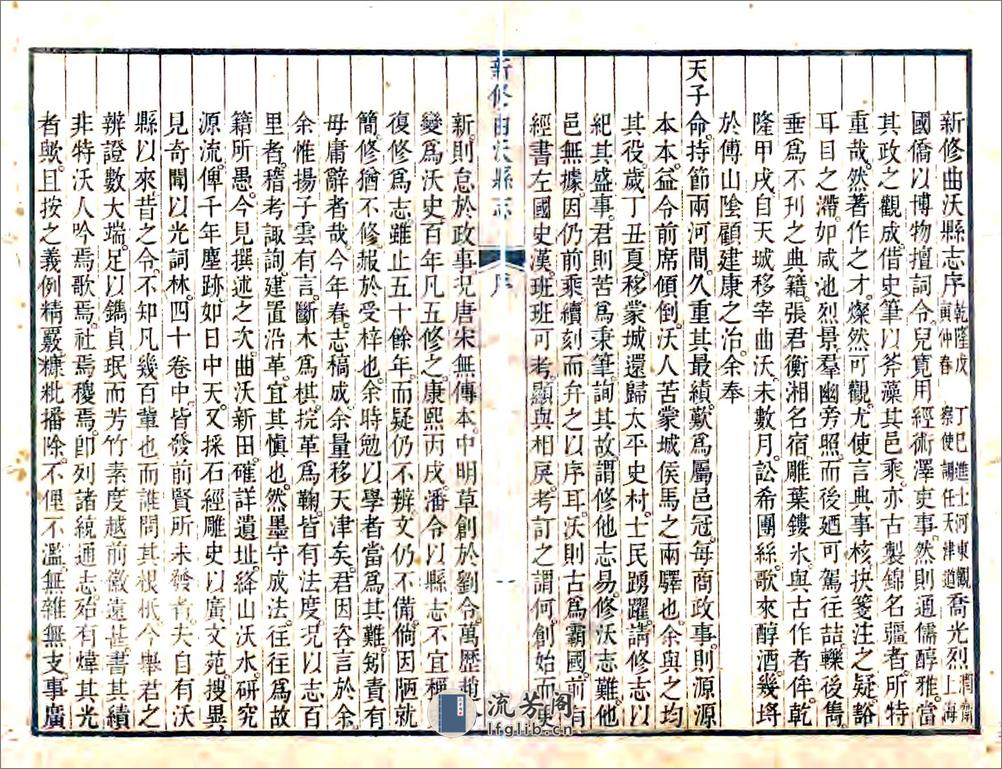 新修曲沃縣志序 乾隆戊寅仲春 丁巳進士河東觀察使調任天津道喬光烈上海潤齋
國僑以博物擅詞令兒寬用經術澤吏事然則通儒醇雅當
其政之觀成借史筆以斧藻其邑乘亦古製錦名疆者所特
重哉然著作之才燦然可觀尤使言典事核抉箋注之疑豁
耳目之滯如咸池烈景羣幽旁照而後廼可駕往喆轢後雋
垂為不刊之典籍張君衡湘名宿雕葉鏤氷與古作者侔乾
隆甲戌自天城移宰曲沃未數月訟希團絲歌來醇酒幾埒
於傅山陰顧建康之治余奉
天子命持節兩河間久重其最績歎為屬邑冠每商政事則源源
本本益令前席傾倒沃人苦蒙城侯馬之兩驛也余與之均
其役歲丁丑夏移蒙城還歸太平史村士民踴躍請修志以
紀其盛事君則苦為秉筆詢其故謂修他志易修沃志難他
邑無據因仍前乘續刻而弁之以序耳沃則古為霸國前有
經書左國史漢班班可考顯與相戾考訂之謂何創始而
新修曲沃縣志 序 一
新則怠於政事況唐宋無傳本中明草創於劉令萬歷趙
變為沃史百年凡五修之康熙丙戌潘令以縣志不宜稱
復修為志雖止五十餘年而疑仍不辨文仍不備倘因陋就
簡修猶不修報於受梓也余時勉以學者當為其難矧責有
毋庸辭者哉今年春志稿成余量移天津矣君因咨言於余
余惟揚子雲有言斷木為棋捖革為鞠皆有法度況以百
里者稽考諏詢建置沿革宜其慎也然墨守成法往往為故
籍所愚今見撰述之次曲沃新田確詳遺址絳山沃水研究
源流俾千年塵跡如日中天又採石經雕史以廣文苑搜異
見奇聞以光詞林四十卷中皆發前賢所未發者夫自有沃
縣以來昔之令不知凡幾百輩也而誰問其根柢今舉君之
辨證數大端足以鐫貞珉而芳竹素度越前徽遠甚書其績
非特沃人吟焉歌焉社焉稷焉卽列諸統通志殆有煒其光
者歟且按之義例精覈糠粃播除不俚不濫無雜無支事廣
流芳閣
lfglib.cn